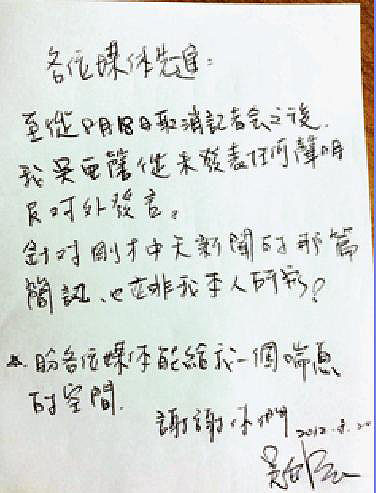 各位媒体先進:
至從8月18日取消記者会之後,
我吳亞馨從未發表任何聲明
及对外發言。
針对剛才中天新聞的那篇
簡訊、也並非我本人所發!
盼各位媒体能給我一個喘息
的空間.
謝謝你們 2012.8.20
吳亞馨